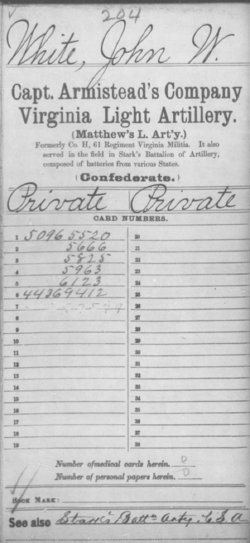 204
White, John W.
Capt. Armistead's Company
Virginia Light Artillery.
(Matthew's L. Art'y.)
Formerly Co. H, 61 Regiment Virginia Militia. It also
served in the field in Stark's Battalion of Artillery,
composed of batteries from various States.
(Confederate.)
Private Private
CARD NUMBERS.
1 50965520 20
2 5666 21
3 5825 22
4 5963 23
5 6123 24
6 44369412 25
7 26
8 27
9 28
10 29
11 30
12 31
13 32
14 33
15 34
16 35
17 36
18 37
19 38
Number of medical cards herein. 0
Number of personal papers herein. 0
BOOK MARK:
See also Stark's Battn Arty, C.S.A.